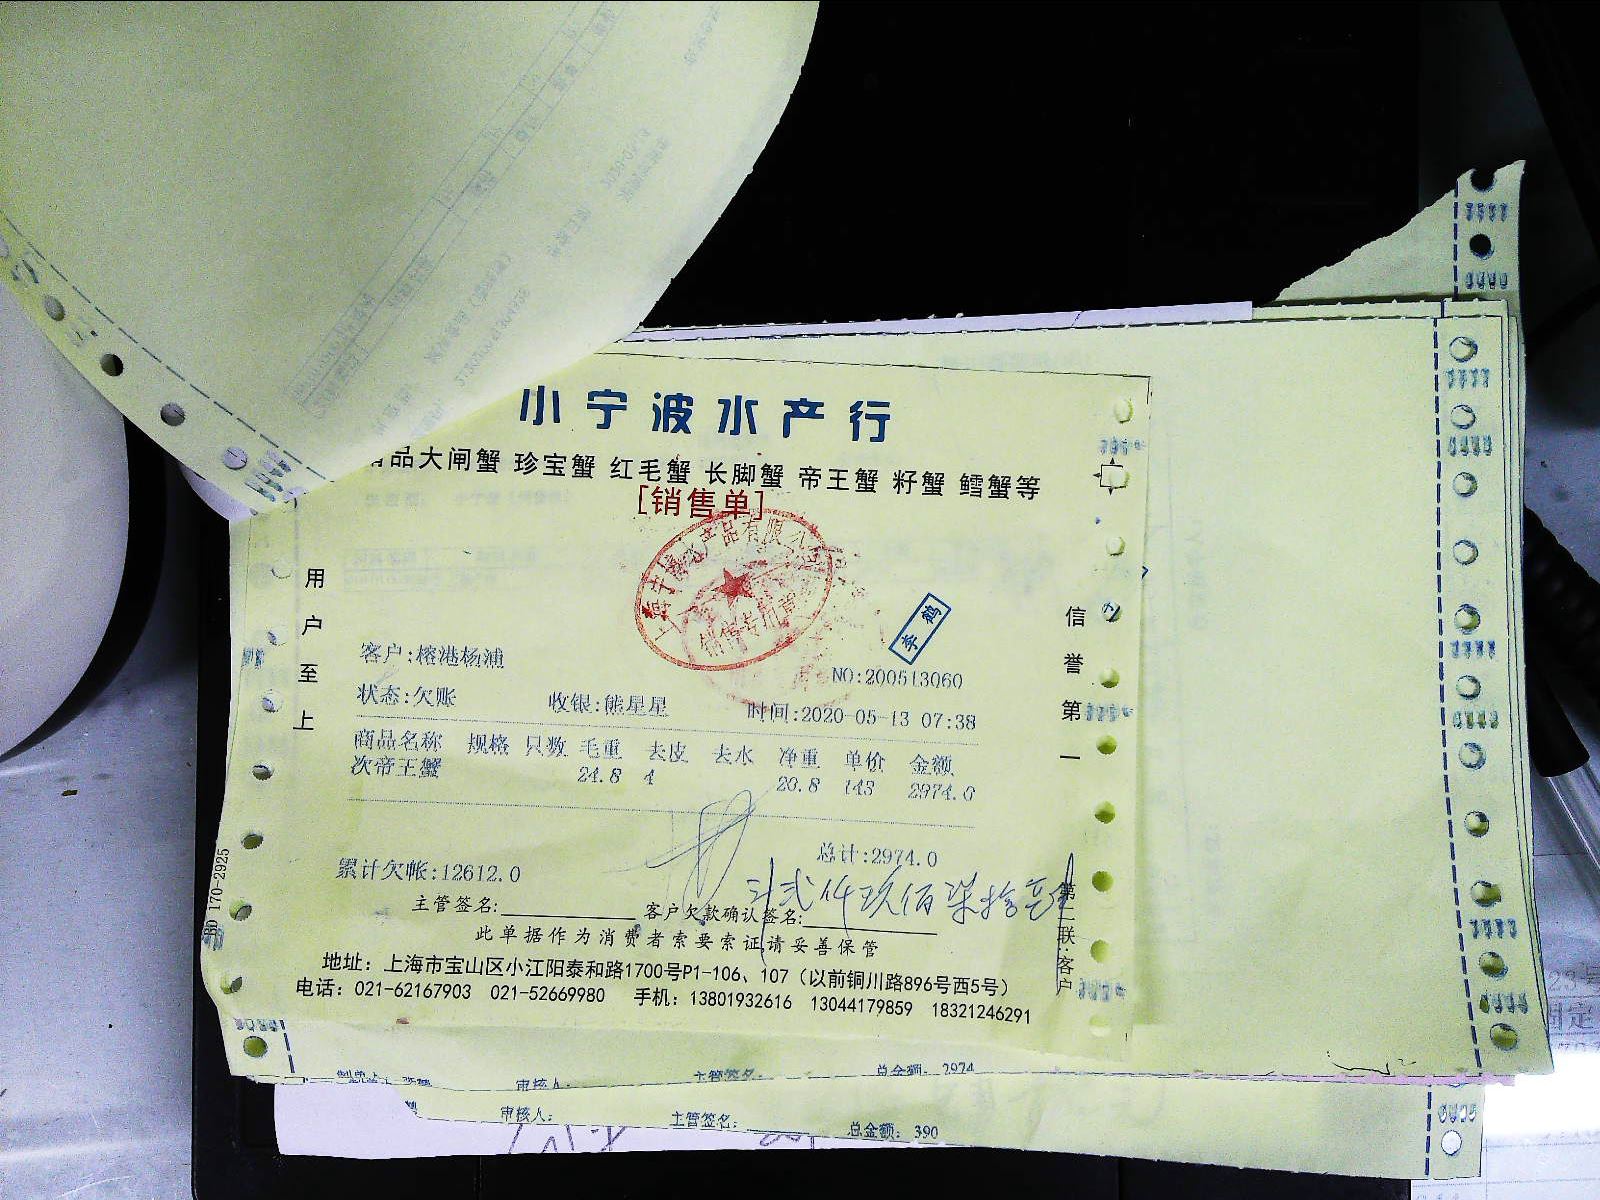 小宁波水产行
品大闸蟹 珍宝蟹 红毛蟹 长脚蟹 帝王蟹 籽蟹 鳕蟹等
[销售单]
销售专用章
李鹤
用户至上
信誉第一
客户:榕港杨浦
NO:200513060
状态:欠账 收银:熊星星 时间:2020-05-13 07:38
商品名称 规格 只数 毛重 去皮 去水 净重 单价 金额
次帝王蟹 24.8 4 20.8 143 2974.0
总计:2974.0
累计欠帐:12612.0
贰仟玖佰柒拾
主管签名: 客户欠款确认签名:
第二联:客户
此单据作为消费者索要索证,请妥善保管
地址：上海市宝山区小江阳泰和路1700号P1-106、107（以前铜川路896号西5号）
电话：021-62167903 021-52669980 手机：13801932616 13044179859 18321246291
170-2925
审核人: 主管签名: 总金额: 2974
审核人: 主管签名: 总金额: 390